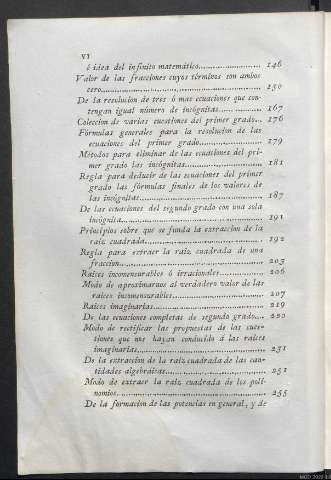 VI
ó idea del infinito matemático.................... 146
Valor de las fracciones cuyos términos son ambos
cero.................... 150
De la resolucion de tres ó mas ecuaciones que con-
tengan igual número de incógnitas............ 167
Coleccion de varias cuestiones del primer grado... 176
Fórmulas generales para la resolucion de las
ecuaciones del primer grado.................... 179
Métodos para eliminar de las ecuaciones del pri-
mer grado las incógnitas.................... 181
Regla para deducir de las ecuaciones del primer
grado las fórmulas finales de los valores de
las incógnitas.................... 187
De las ecuaciones del segundo grado con una sola
incógnita.................... 191
Principios sobre que se funda la extraccion de la
raiz cuadrada.................... 192
Regla para extraer la raiz cuadrada de una
fraccion.................... 203
Raices inconmensurables ó irracionales............ 206
Modo de aproximarnos al verdadero valor de las
raices inconmensurables.................... 207
Raices imaginarias.................... 219
De las ecuaciones completas de segundo grado.... 220
Modo de rectificar las propuestas de las cues-
tiones que nos hayan conducido á las raices
imaginarias.................... 231
De la extraccion de la raiz cuadrada de las can-
tidades algebraicas.................... 251
Modo de extraer la raiz cuadrada de los poli-
nomios.................... 255
De la formacion de las potencias en general, y de